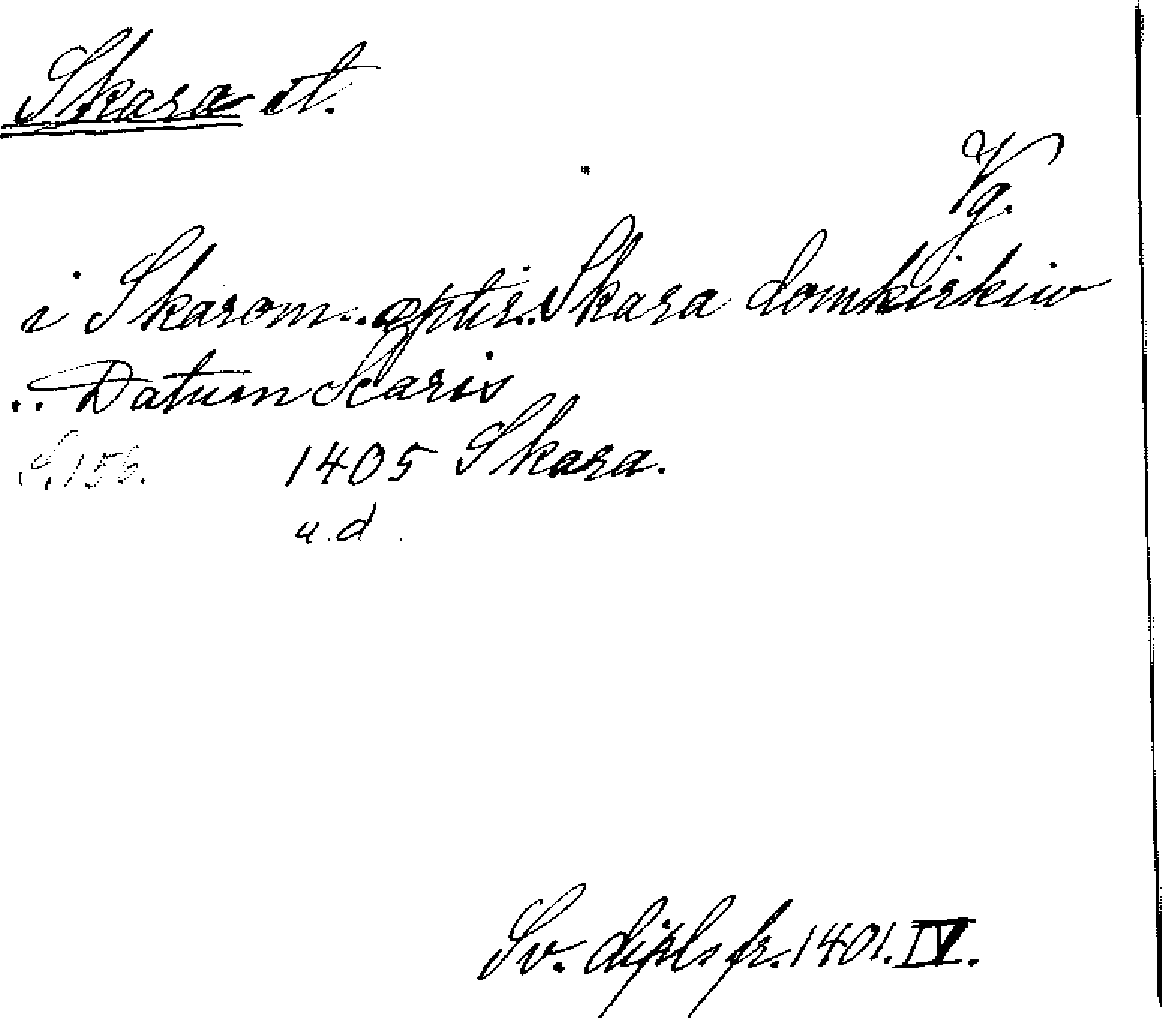 Skara st.
Vg.
i Skarom.. æptir.. Skara domkirkiu
.. Datum Scaris
S. 156. 1405 Skara.
u.d.
Sv. dipl. fr. 1401. IV.